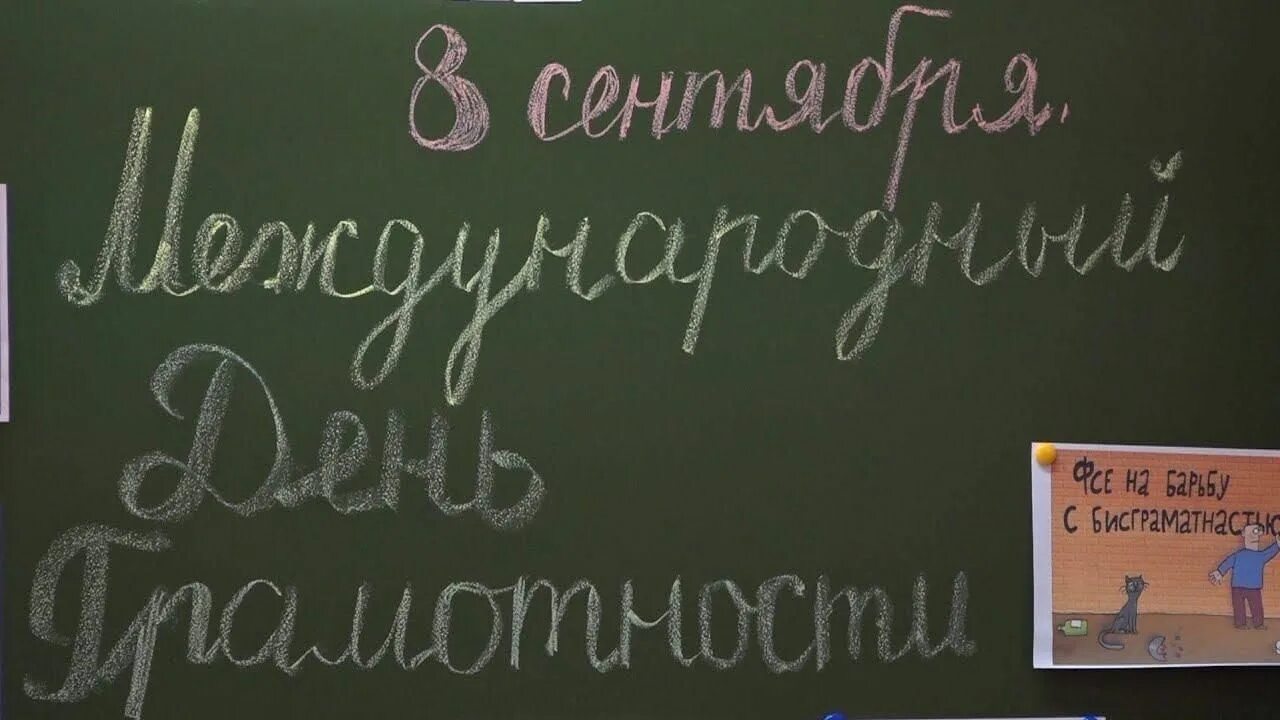 8 сентября.
Международный
День
Грамотности
Фсе на барьбу
с бисграматнастью